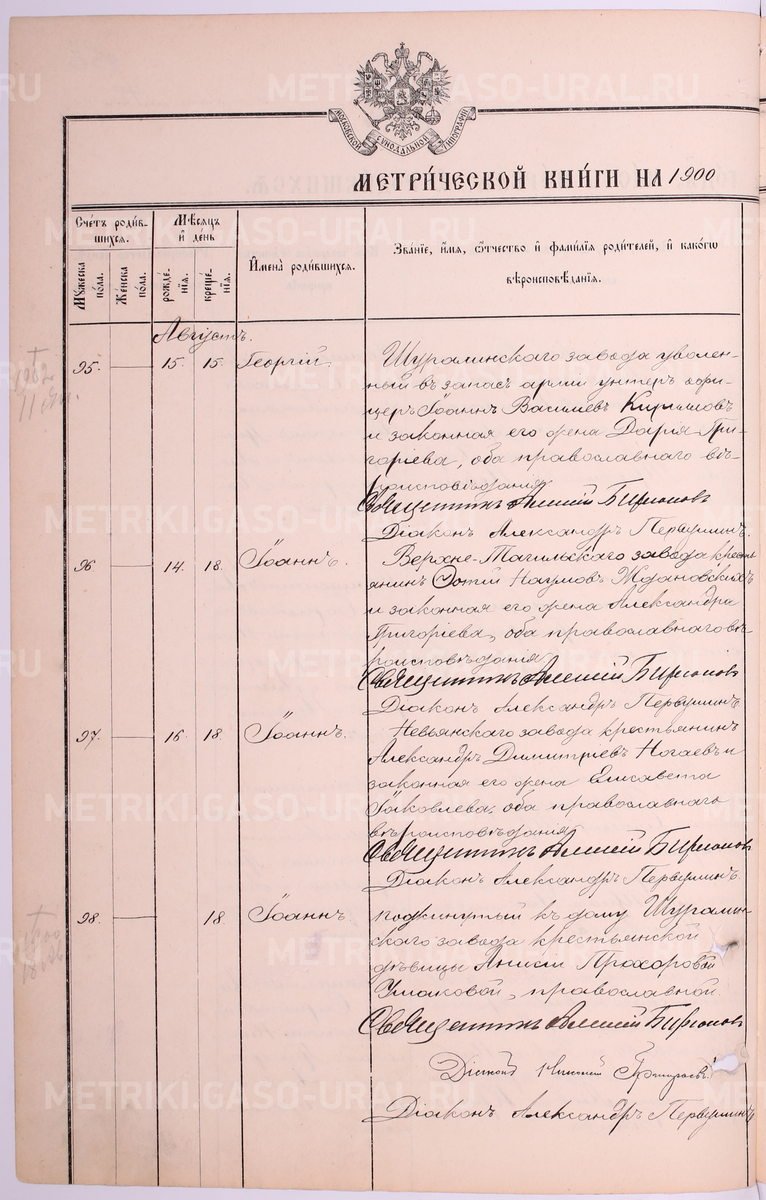 METRIKI.GASO-URAL.RU
МОСКОВСКОЙ СѴНОДАЛЬНОЙ ТИПОГРАФІИ
МЕТРИ́ЧЕСКОЙ КНИ́ГИ НА 1900
Сче́тъ роди́в-
шихсѧ.
Мꙋ́жеска по́ла.
Же́нска по́ла.
Мѣ́сѧцъ
и҆ де́нь
рожде́-
нїѧ.
креще́-
нїѧ.
И҆мена̀ роди́вшихсѧ.
Зва́нїе, и҆́мѧ, ѻ҆́тчество и҆ фамилїѧ роди́телей, и҆ како́гѡ
вѣроисповѣ́данїѧ.
Августъ.
95. 15. 15. Георгій
Шуралинскаго завода уволен-
ный въ запасъ арміи унтеръ офи-
церъ Іоаннъ Василіевъ Кирилловъ
и законная его жена Дарія Гри-
горіева, оба православнаго вѣ-
роисповѣданія
Священникъ Алексій Бирюковъ
Діаконъ Александръ Первушинъ.
96 14. 18. Іоаннъ.
Верхне-Тагильскаго завода крестья-
нинъ Фотій Наумовъ Ждановскихъ
и законная его жена Александра
Григоріева, оба православнаго вѣ-
роисповѣданія
Священникъ Алексій Бирюковъ
Діаконъ Александръ Первушинъ.
97. 16. 18. Іоаннъ.
Невьянскаго завода крестьянинъ
Александръ Димитріевъ Ногаевъ и
законная его жена Елисавета
Іаковлева, оба православнаго
вѣроисповѣданія
Священникъ Алексій Бирюковъ
Діаконъ Александръ Первушинъ.
98. 18 Іоаннъ
подкинутый къ дому Шуралин-
скаго завода крестьянской
дѣвицы Анисіи Прохоровой
Ушаковой, православной
Священникъ Алексій Бирюковъ
Діаконъ
Діаконъ Александръ Первушинъ